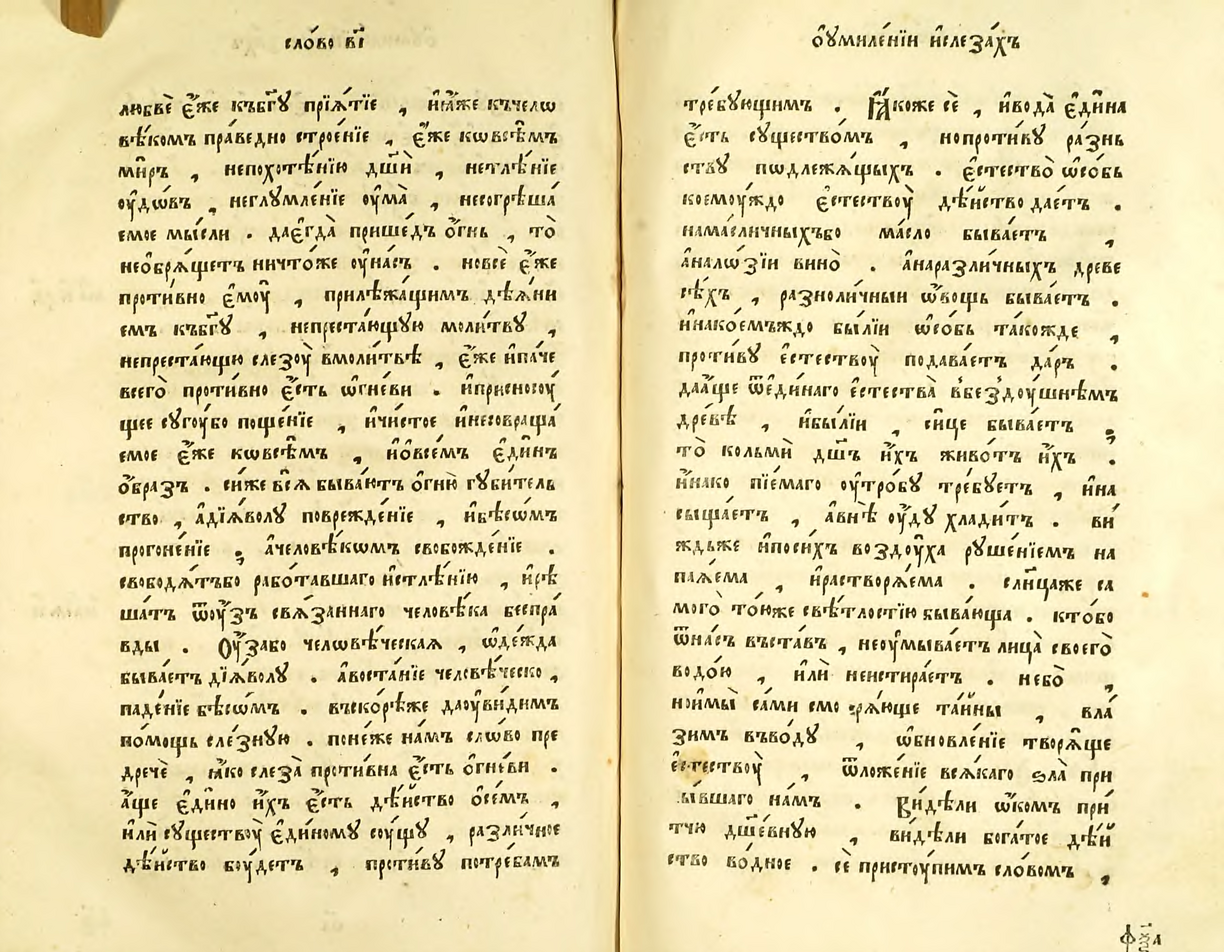 сло́во в҃і
любвѐ є҆́же къбг҃ꙋ прїѧ́тїе , и҆ꙗ҆́же къчелѡ
вѣ́комъ пра́ведно строе́нїе , є҆́же кѡвсѣ̑мъ
ми̑ръ , непохотѣ́нїю дш҃и̑ , нетлѣ́нїе
оу҆́дѡвъ , неглꙋмле́нїе оу҆ма̀ , несогрѣша́
емое мы́сли . даєгда̀ прише́дъ ѻ҆́гнь , то̀
необрѧ́щетъ ничто́же оу҆на́съ . новсѐ є҆́же
проти́вно є҆моу̀ , прилѣжа́щимъ дѣѧ́ни
емъ къбг҃ꙋ , непреста́ющꙋю моли́твꙋ ,
непреста́ющꙋ слезоу̀ вмоли́твѣ , є҆́же и҆па́че
всего̀ проти́вно є҆́сть ѻ҆гне́ви . и҆присносоу́
щее сꙋгоу́бо поще́нїе , и҆чи́стое и҆несовраща́
емое є҆́же кѡвсѣ̑мъ , и҆ѻвсе́мъ є҆ди́нъ
ѻ҆́бразъ . си́же всѧ̑ быва́ютъ ѻ҆гню̀ гꙋби́тель
ство , а҆дїѧ́волꙋ поврежде́нїе , и҆бѣсѡ́мъ
прогоне́нїе ; а҆человѣ́кѡмъ свобожде́нїе .
свободѧ́тъбо рабо́тавшаго и҆стлѣ́нїю , и҆рѣ
ша́тъ ѿоу҆́зъ свѧ́заннаго человѣ́ка беспра́
вды . Оу҆́забо челѡвѣ́ческаѧ , ѡ҆де́жда
быва́етъ дїѧ́волꙋ . а҆воста́нїе человѣ́ческо ,
паде́нїе бѣсѡ́мъ . въско́рѣже даоу҆ви́димъ
по́мощь сле́знꙋю . поне́же на́мъ сло́во пре
дречѐ , ꙗ҆́ко слеза̀ проти́вна є҆́сть ѻ҆гне́ви .
а҆́ще є҆ди́но и҆́хъ є҆́сть дѣ́йство ѻ҆се́мъ ,
и҆лѝ сꙋществоу̀ є҆ди́номꙋ соу́щꙋ , разли́чное
дѣ́йство боу́детъ , проти́вꙋ потре́бамъ
ѻ҆оу҆миле́нїи и҆слеза́хъ
тре́бꙋющимъ . Ꙗ҆́коже сѐ , и҆вода̀ є҆ди́на
є҆́сть сꙋщество́мъ , нопроти́вꙋ ра́знь
ствꙋ пѡдлежѧ́щыхъ . є҆стество̀ ѡ҆со́бь
коемоу́ждо є҆стествоу̀ дѣ́йство дае́тъ .
нама́сличныхъбо ма́сло быва́етъ ,
а҆налѡзїи вино̀ . а҆наразли́чныхъ древе
сѣ́хъ , разноли́чныи ѡ҆́вощь быва́етъ .
и҆нако́емъждо бы́лїи ѡ҆со́бь та́кожде ,
проти́вꙋ є҆стествоу̀ подава́етъ да́ръ .
даа҆́ще ѿє҆ди́наго є҆стества̀ вбездоу́шнѣмъ
дре́вѣ , и҆бы́лїи , си́це быва́етъ ;
то̀ кольмѝ дш҃ъ и҆́хъ живо́тъ и҆́хъ .
и҆́нако пїе́маго оу҆тро́бꙋ тре́бꙋетъ , и҆на
сыща́етъ , а҆внѣ̀ оу҆́дꙋ хлади́тъ . ви́
ждьже и҆поси́хъ воздоу́ха рꙋше́нїемъ на
паѧ́ема , и҆растворѧ́ема . сл҃нцаже са
мого̀ то́юже свѣ́тлостїю быва́юща . кто́бо
ѿна́съ въста́въ , неоу҆мыва́етъ лица̀ своего̀
водо́ю , и҆лѝ неистира́етъ . не́бо ,
но́имы̀ са́ми смо рѧ́юще та́йны , вла́
зимъ въво́дꙋ , ѡ҆бновле́нїе творѧ́ще
є҆стествоу̀ , ѿложе́нїе всѧ́каго ѕла̀ при
бы́вшаго на́мъ . Ви́дѣли ѻ҆́комъ при́
тчю дш҃е́внꙋю , ви́дѣли бога́тое дѣ́й
ство во́дное . сѐ пристоу́пимъ сло́вомъ ,